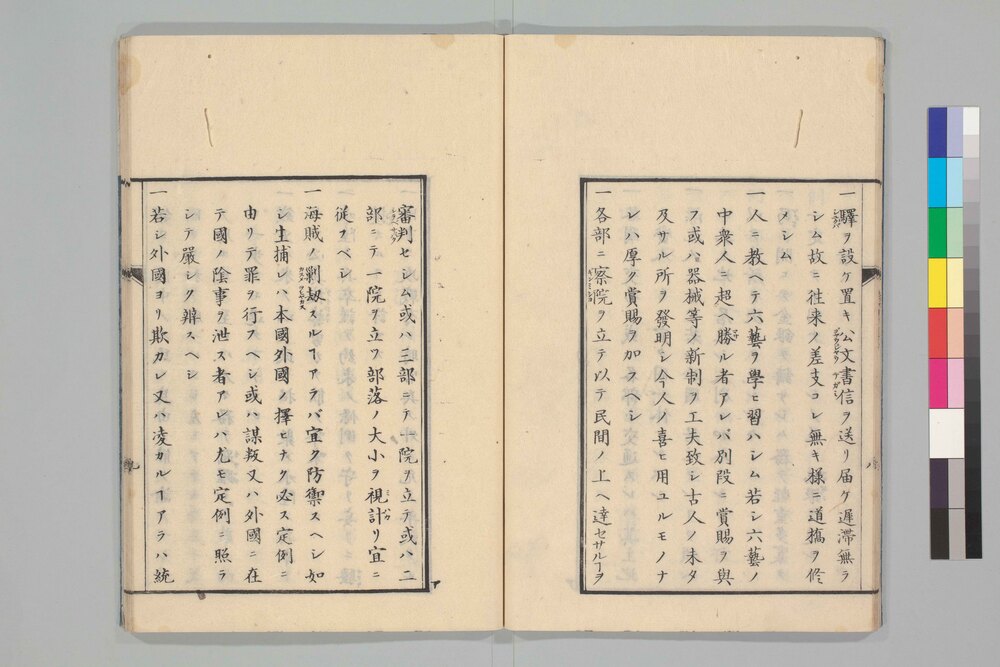 一驛ヲ設ケ置キ公文書信ヲ送リ届ケ遅滞無ラ
シム故ニ往来ノ差支コレ無キ様ニ道橋ヲ修
メシム
一人ニ教ヘテ六藝ヲ學ヒ習ハシム若シ六藝ノ
中衆人ニ超ヘ勝ル者アレバ別段ニ賞賜ヲ與
フ或ハ器械等ノ新制ヲ工夫致シ古人ノ未タ
及サル所ヲ發明シ今人ノ喜ヒ用ユルモノナ
レハ厚ク賞賜ヲ加ラヘシ
一各部ニ察院ヲ立テ以テ民間ノ上ヘ達セサルヿヲ
八
審判セシム或ハ三部ニテ一院ヲ立テ或ハ二
部ニテ一院ヲ立ツ部落ノ大小ヲ視計リ宜ニ
従フベシ
一海賊ノ剿劫スルヿアラバ宜ク防禦スヘシ如
シ生捕レハ本國外國ノ擇ヒナク必ス定例ニ
由リテ罪ヲ行フヘシ或ハ謀叛又ハ外國ニ在
テ國ノ陰事ヲ泄ス者アレハ尤モ定例ニ照ラ
シテ嚴シク辨スヘシ
一若シ外國ヨリ欺カレ又ハ凌カルヿアラハ統
九